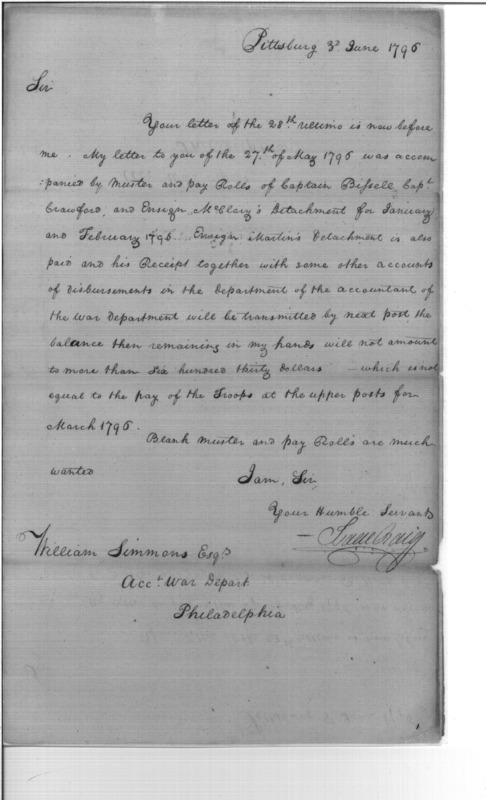 Pittsburg 3d June 1796
Sir
Your letter of the 28.th ultimo is now before
me. My letter to you of the 27.th of May 1796 was accom
:panied by Muster and pay Rolls of Captain Bissell, Capt
Crawford, and Ensign McClary's Detachment for January
and February 1796. Ensign Martin's Detachment is also
paid and his Receipt together with some other accounts
of disbursements in the department of the accountant of
the War Department will be transmitted by next post the
balance then remaining in my hands will not amount
to more than Six hundred thirty dollars — which is not
equal to the pay of the Troops at the upper posts for
March 1796.
Blank muster and pay Rolls are much
wanted
I am, Sir,
Your Humble Servant
Isaac Craig
William Simmons Esqr
Acct War Depart
Philadelphia